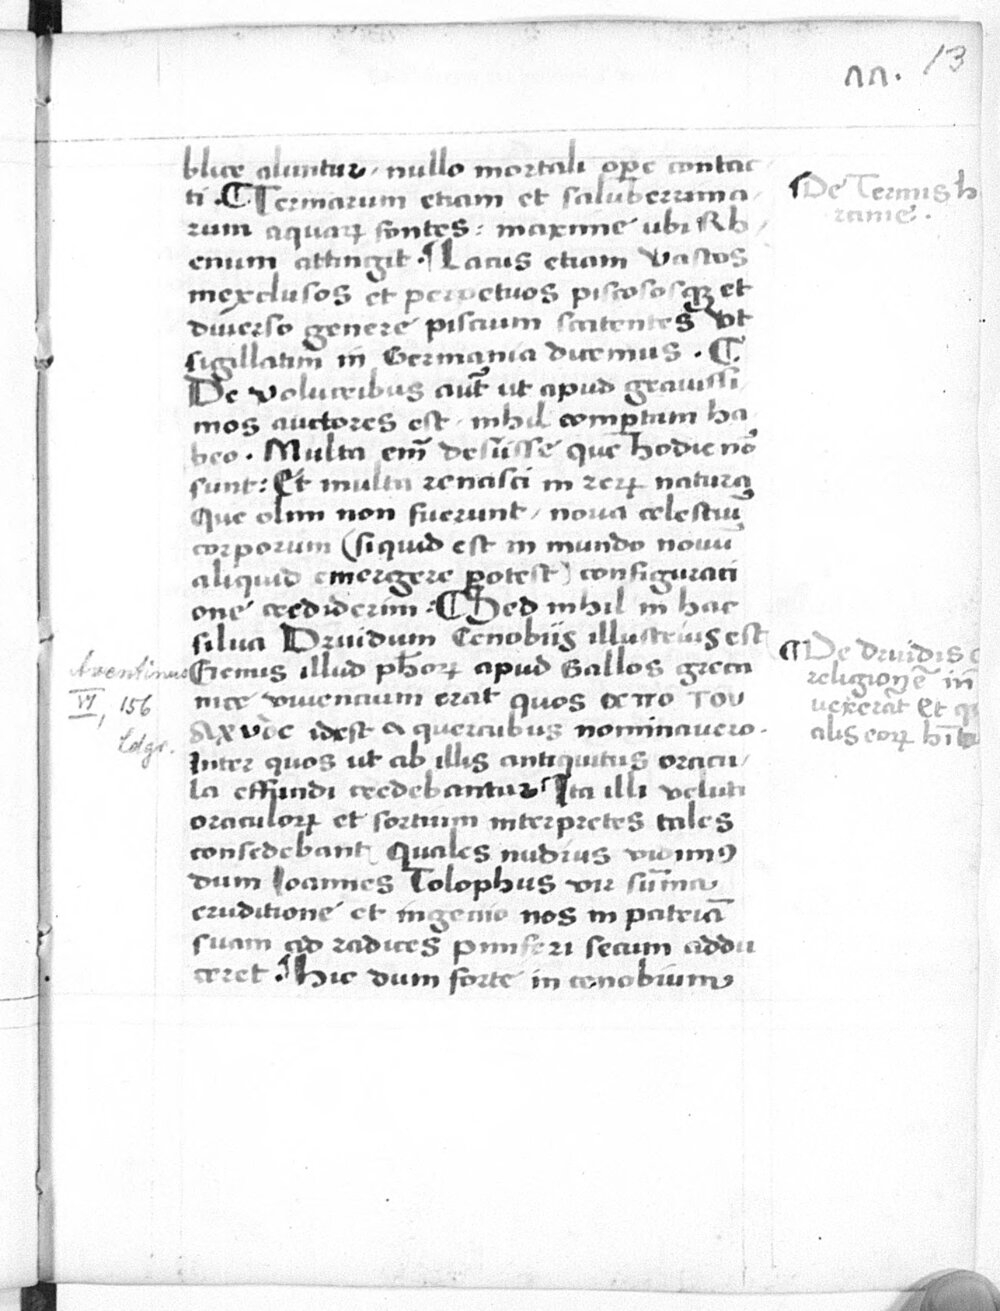 13
blice aluntur, nullo mortali oꝑe contac
ti. ¶ Termarum etiam et saluberrima,
rum aquaꝝ fontes: maxime ubi Rh,
enum attingit. ¶ Lacus etiam vastos
inexclusos et perpetuos piscososqꝫ et
diuerso genere piscium scatentes vt
sigillatim in Germania dicemus. ¶
De volucribus aut̄ ut apud grauissi
mos auctores est, nihil compertum ha,
beo. Multa em̄ desiisse que hodie nō
sunt: Et multa renasci in reꝝ natura
Que olim non fuerunt, noua celestiū
corporum (si quid est in mundo nouū
aliquid emergere potest) configurati
one crediderim: ¶ Sed nihil in hac
silua Druidum Cenobiis illustrius est
Genus illud ph̄oꝝ apud Gallos greca
nice viuencium erat quos απο του
δρυδε idest a quercubus nominauero.
Inter quos ut ab illis antiquitus oracu,
la effundi credebantur ¶ Ita illi veluti
oraculoꝝ et sortium interpretes tales
consedebant Quales nudius vidimꝰ
dum Ioannes Tolophus vir sūma
eruditione et ingenio nos in patriā
suam ad radices piniferi secum addu
ceret. ¶ Hic dum forte in cenobium
¶ De Termis h
ranie.
¶ De druidis
religione in
uexerat Et
alis eoꝝ
Aventinus
VI, 156